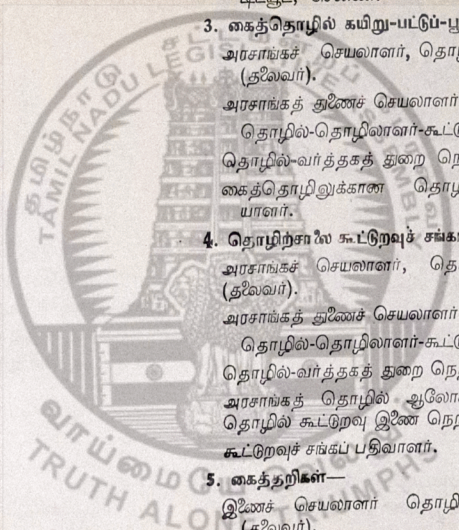 3. கைத்தொழில் கயிறு-பட்டுப்-பூ
அரசாங்கச் செயலாளர், தொழ
(தலைவர்).
அரசாங்கத் துணைச் செயலாளர்
தொழில்-தொழிலாளர்-கூட்டு
தொழில்-வர்த்தகத் துறை நெ
கைத்தொழிலுக்கான தொழ
யாளர்.
4. தொழிற்சாலை கூட்டுறவுச் சங்க
அரசாங்கச் செயலாளர், தொ
(தலைவர்).
அரசாங்கத் துணைச் செயலாளர்
தொழில்-தொழிலாளர்-கூட்டு
தொழில்-வர்த்தகத் துறை நெ
அரசாங்கத் தொழில் ஆலோ
தொழில் கூட்டுறவு இணை நெற
கூட்டுறவுச் சங்கப் பதிவாளர்.
5. கைத்தறிகள்—
இணைச் செயலாளர் தொழி
(தலைவர்).
தமிழ்நாடு
TAMIL NADU LEGIS
EMBLY
வாய்மை
TRUTH ALO
MPHS